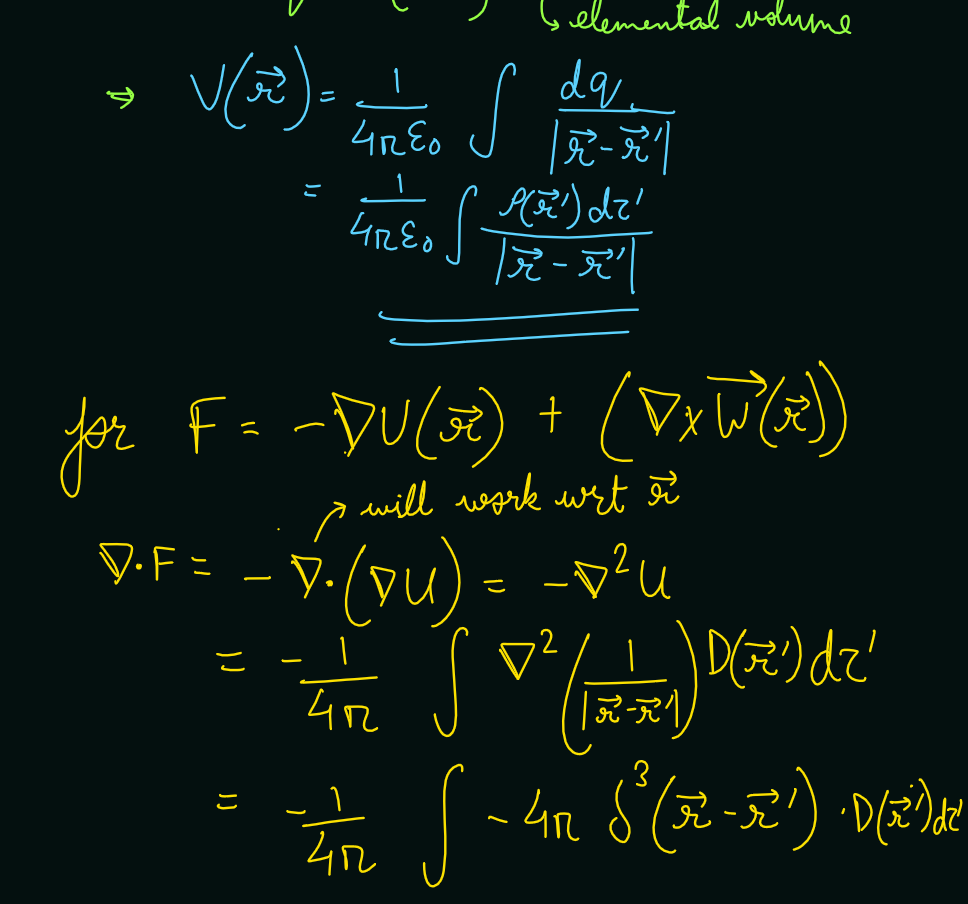 ↳ elemental volume
⇒ V(r⃗) = 1/4πε₀ ∫ dq/|r⃗ - r⃗'|
= 1/4πε₀ ∫ ρ(r⃗')dτ'/|r⃗ - r⃗'|
for F = -∇U(r⃗) + (∇×W⃗(r⃗))
→ will work wrt r⃗
∇·F = -∇·(∇U) = -∇²U
= -1/4π ∫ ∇²(1/|r⃗-r⃗'|) D(r⃗')dτ'
= -1/4π ∫ -4π δ³(r⃗-r⃗') · D(r⃗')dτ'